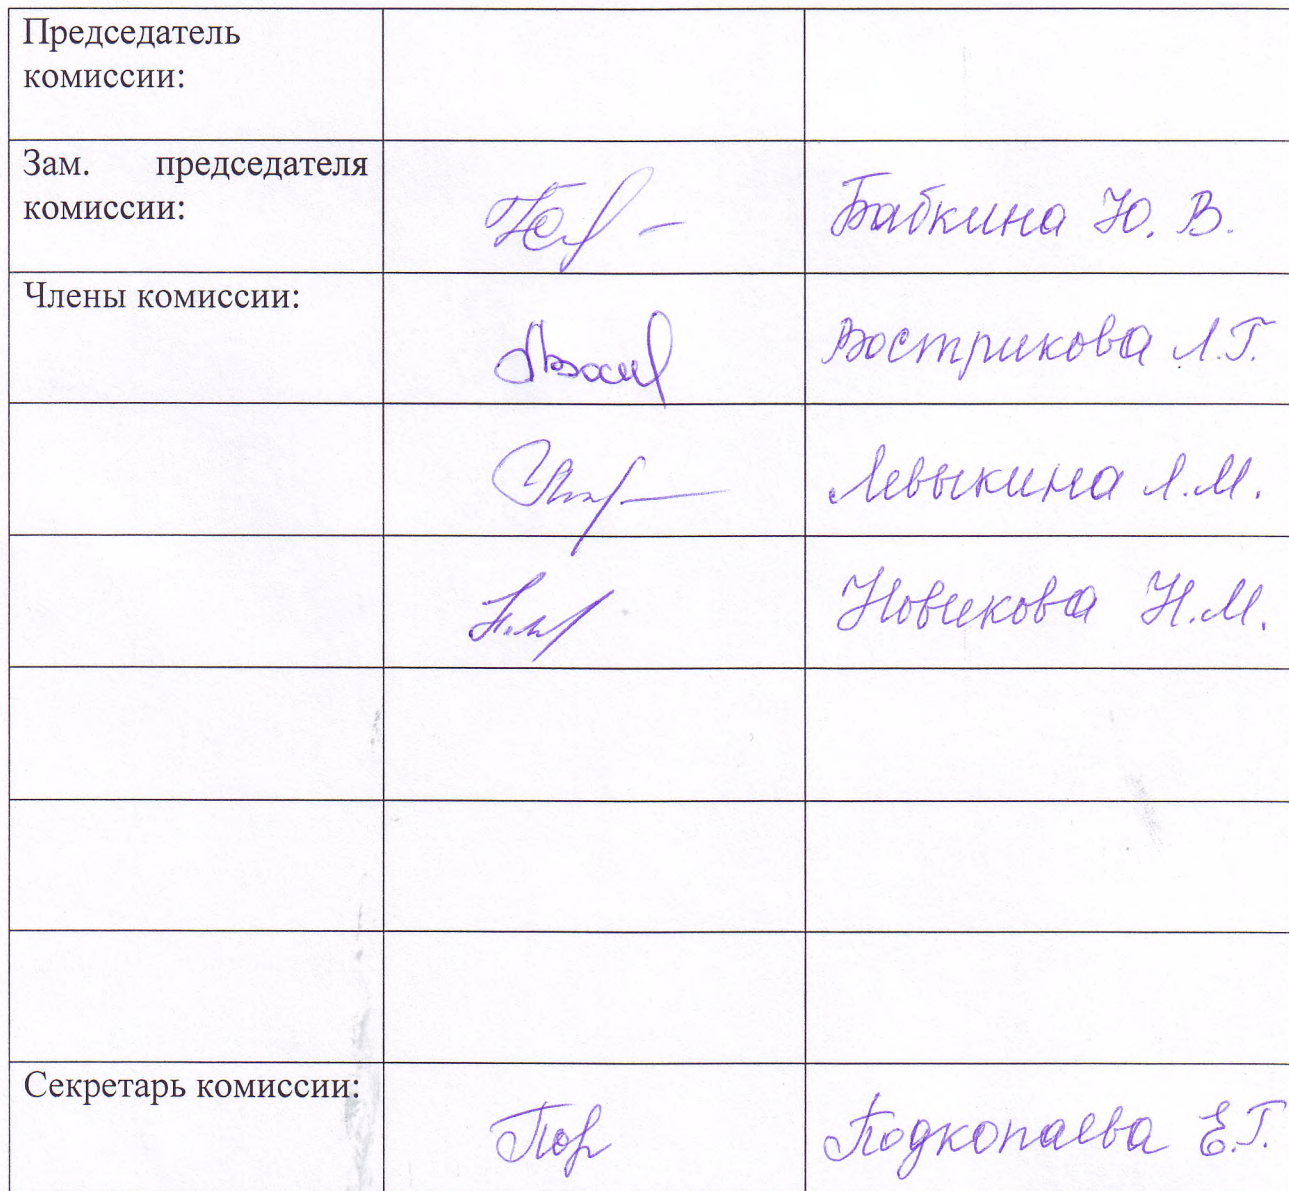 Председатель
комиссии:
Зам. председателя
комиссии:
Бабкина Ю. В.
Члены комиссии:
Вострикова Л.Г.
Левыкина Л.М.
Новикова Н.М.
Секретарь комиссии:
Подкопаева Е.Г.